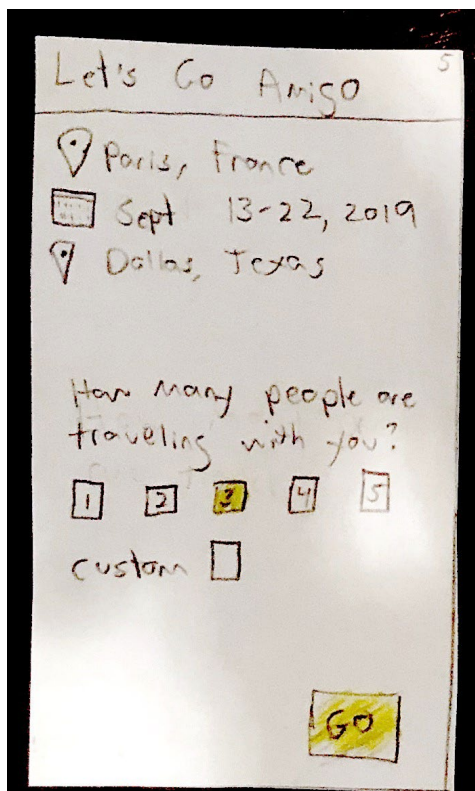 5
Let's Go Amigo
Paris, France
Sept 13-22, 2019
Dallas, Texas
How many people are
traveling with you?
1 2 3 4 5
custom
GO